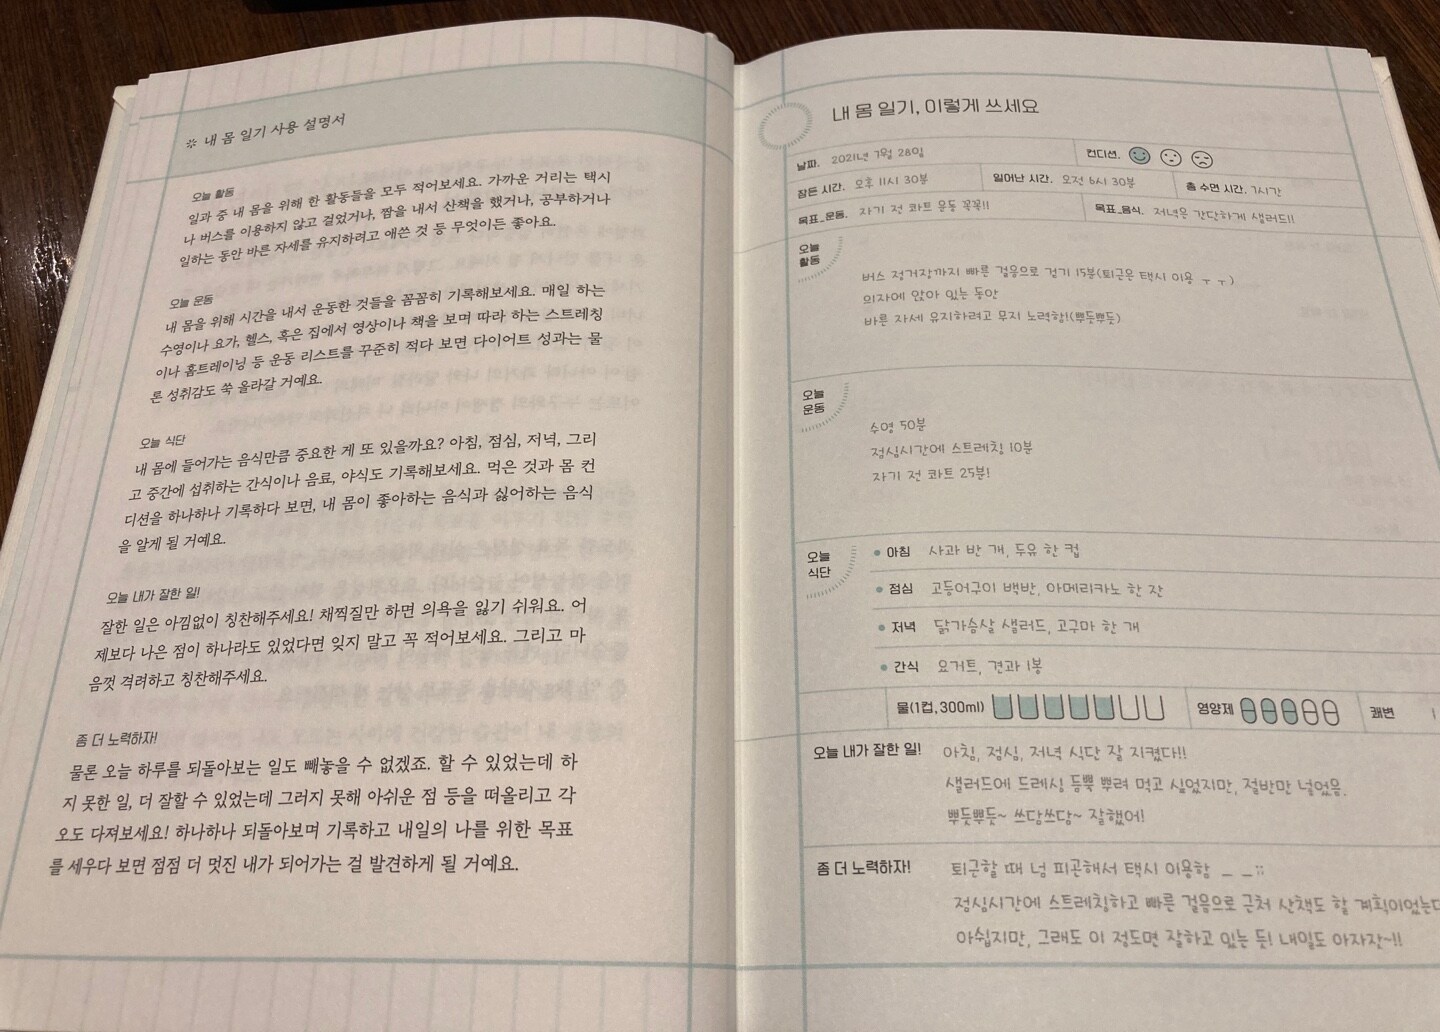 ※ 내 몸 일기 사용 설명서
오늘 활동
일과 중 내 몸을 위해 한 활동들을 모두 적어보세요. 가까운 거리는 택시
나 버스를 이용하지 않고 걸었거나, 짬을 내서 산책을 했거나, 공부하거나
일하는 동안 바른 자세를 유지하려고 애쓴 것 등 무엇이든 좋아요.
오늘 운동
내 몸을 위해 시간을 내서 운동한 것들을 꼼꼼히 기록해보세요. 매일 하는
수영이나 요가, 헬스, 혹은 집에서 영상이나 책을 보며 따라 하는 스트레칭
이나 홈트레이닝 등 운동 리스트를 꾸준히 적다 보면 다이어트 성과는 물
론 성취감도 쑥 올라갈 거예요.
오늘 식단
내 몸에 들어가는 음식만큼 중요한 게 또 있을까요? 아침, 점심, 저녁, 그리
고 중간에 섭취하는 간식이나 음료, 야식도 기록해보세요. 먹은 것과 몸 컨
디션을 하나하나 기록하다 보면, 내 몸이 좋아하는 음식과 싫어하는 음식
을 알게 될 거예요.
오늘 내가 잘한 일!
잘한 일은 아낌없이 칭찬해주세요! 채찍질만 하면 의욕을 잃기 쉬워요. 어
제보다 나은 점이 하나라도 있었다면 잊지 말고 꼭 적어보세요. 그리고 마
음껏 격려하고 칭찬해주세요.
좀 더 노력하자!
물론 오늘 하루를 되돌아보는 일도 빼놓을 수 없겠죠. 할 수 있었는데 하
지 못한 일, 더 잘할 수 있었는데 그러지 못해 아쉬운 점 등을 떠올리고 각
오도 다져보세요! 하나하나 되돌아보며 기록하고 내일의 나를 위한 목표
를 세우다 보면 점점 더 멋진 내가 되어가는 걸 발견하게 될 거예요.
내 몸 일기, 이렇게 쓰세요
날짜. 2021년 7월 28일 컨디션.
잠든 시간. 오후 11시 30분 일어난 시간. 오전 6시 30분 총 수면 시간. 7시간
목표_운동. 자기 전 콰트 운동 꼭꼭!! 목표_음식. 저녁은 간단하게 샐러드!!
오늘
활동
버스 정거장까지 빠른 걸음으로 걷기 15분(퇴근은 택시 이용 ㅜㅜ)
의자에 앉아 있는 동안
바른 자세 유지하려고 무지 노력함!(뿌듯뿌듯)
오늘
운동
수영 50분
점심시간에 스트레칭 10분
자기 전 콰트 25분!
오늘
식단
• 아침 사과 반 개, 두유 한 컵
• 점심 고등어구이 백반, 아메리카노 한 잔
• 저녁 닭가슴살 샐러드, 고구마 한 개
• 간식 요거트, 견과 1봉
물(1컵, 300ml) 영양제 쾌변 1
오늘 내가 잘한 일! 아침, 점심, 저녁 식단 잘 지켰다!!
샐러드에 드레싱 듬뿍 뿌려 먹고 싶었지만, 절반만 넣었음.
뿌듯뿌듯~ 쓰담쓰담~ 잘했어!
좀 더 노력하자! 퇴근할 때 넘 피곤해서 택시 이용함 _ _;;
점심시간에 스트레칭하고 빠른 걸음으로 근처 산책도 할 계획이었는데
아쉽지만, 그래도 이 정도면 잘하고 있는 듯! 내일도 아자잣~!!